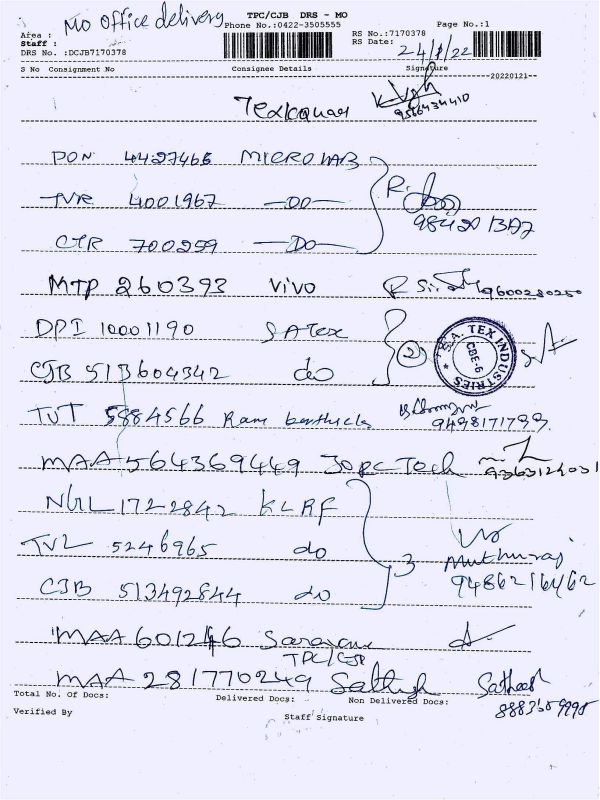 MO Office delivery
TPC/CJB DRS - MO
Phone No.:0422-3505555
Page No.:1
Area :
Staff :
DRS No. :DCJB7170378
RS No.:7170378
RS Date: 24/1/22
S No Consignment No Consignee Details Signature
--20220121--
9566434410
PON 4427466 MICROLAB
TVR 4001967 -DO-
CTR 700259 -DO-
98420
MTP 260393 VIVO 9600280250
DPI 10001190 SATEX 2
S.A. TEX INDUSTRIES
CBE-6
CJB 513604342 do
TUT 5884566 Ram
9498171799
MAA 564369449
NGL 1722842 KLRF
TVL 5246965 do 3
Muthuraj
CJB 513492844 do
MAA 601246
TPC/CJB
MAA 281770249 Sathish Satheesh
Total No. Of Docs: Delivered Docs: Non Delivered Docs:
Verified By
Staff Signature